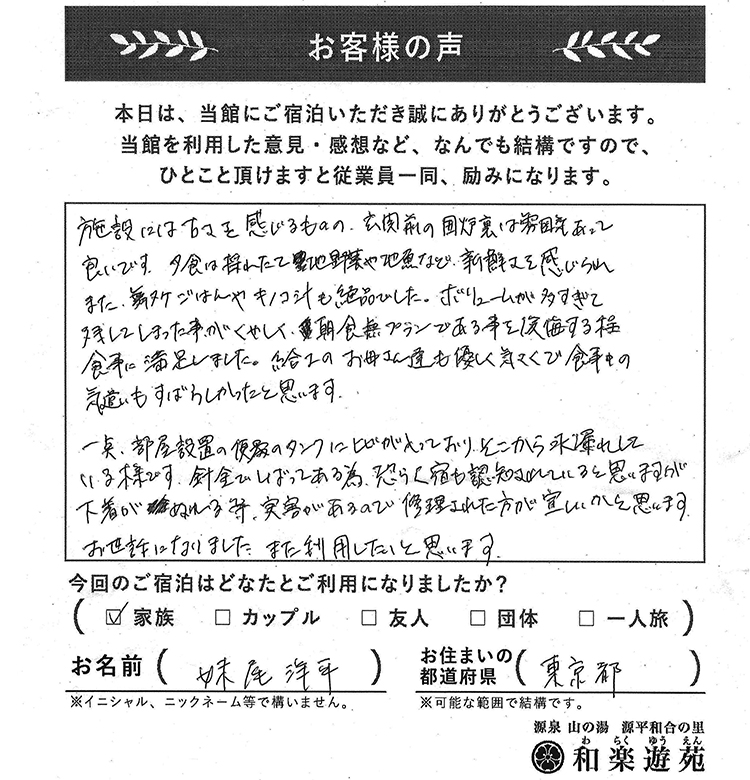 お客様の声
本日は、当館にご宿泊いただき誠にありがとうございます。
当館を利用した意見・感想など、なんでも結構ですので、
ひとこと頂けますと従業員一同、励みになります。
施設には古さを感じるものの、玄関前の囲炉裏は雰囲気あって
良いです。夕食は採れたて 地野菜や地魚など、新鮮さを感じられ
また、舞タケごはんやキノコ汁も絶品でした。ボリュームが多すぎて
残してしまった事がくやしく、朝食無プランである事を後悔する程
食事に満足しました。給仕のお母さん達も優しく気さくで食事中の
気遣いもすばらしかったと思います。
一点、部屋設置の便器のタンクにヒビが入っており、そこから水漏れして
いる様です。針金でしばってある為、恐らく宿も認知されていると思いますが
下着がぬれる等、実害があるので修理された方が宜しいかと思います。
お世話になりました。また利用したいと思います。
今回のご宿泊はどなたとご利用になりましたか？
( ☑ 家族 □ カップル □ 友人 □ 団体 □ 一人旅 )
お名前 ( 妹尾 洋平 )
※イニシャル、ニックネーム等で構いません。
お住まいの都道府県 ( 東京都 )
※可能な範囲で結構です。
源泉 山の湯 源平和合の里
わ らく ゆう えん
和楽遊苑